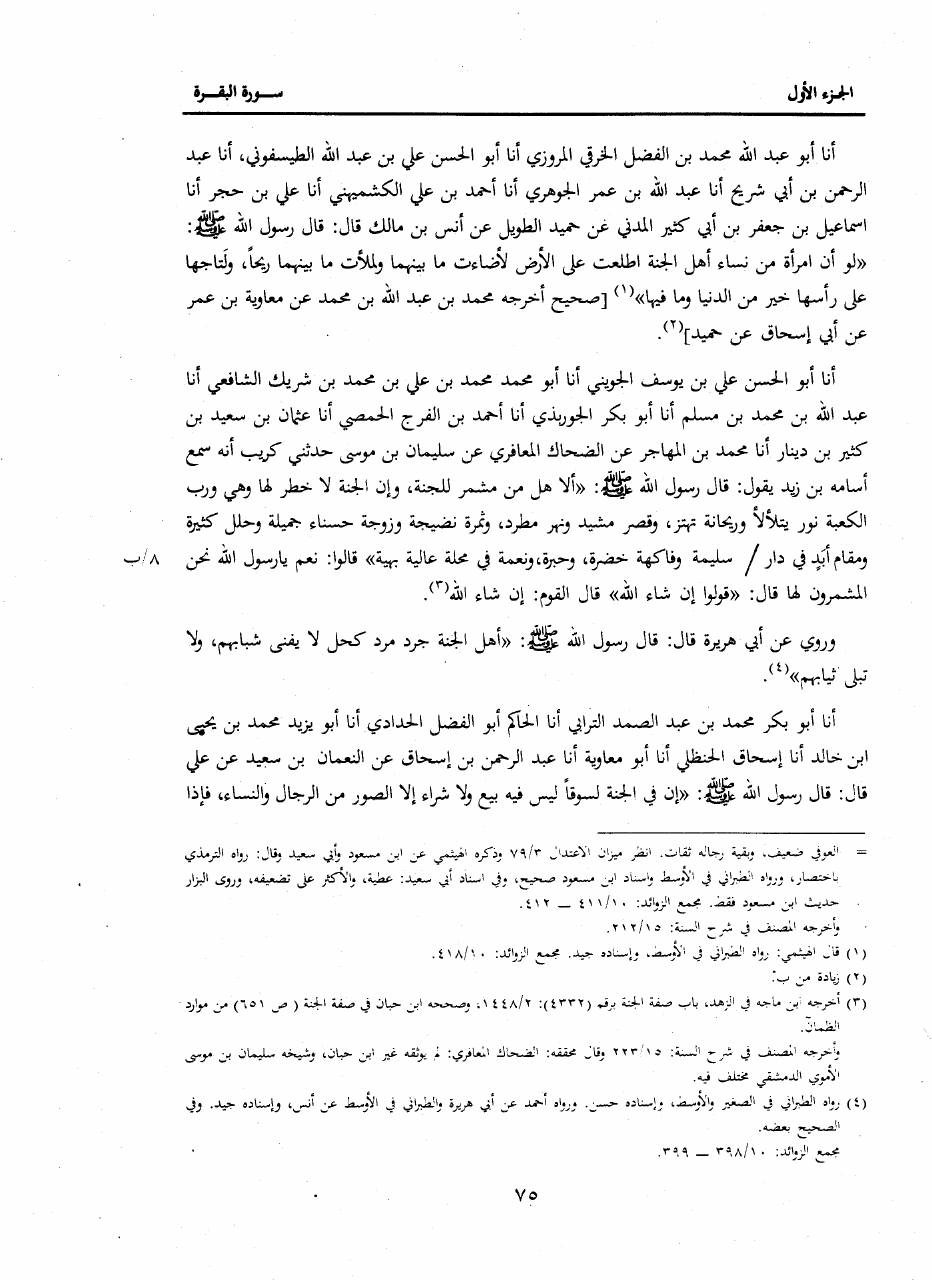 الجزء الأول
سورة البقرة
أنا أبو عبد الله محمد بن الفضل الخرقي المروزي أنا أبو الحسن علي بن عبد الله الطيسفوني، أنا عبد
الرحمن بن أبي شريح أنا عبد الله بن عمر الجوهري أنا أحمد بن علي الكشميهني أنا علي بن حجر أنا
اسماعيل بن جعفر بن أبي كثير المدني عن حميد الطويل عن أنس بن مالك قال: قال رسول الله ﷺ:
«لو أن امرأة من نساء أهل الجنة اطلعت على الأرض لأضاءت ما بينهما ولملأت ما بينهما ريحاً، ولَتاجها
على رأسها خير من الدنيا وما فيها»(١) [صحيح أخرجه محمد بن عبد الله بن محمد عن معاوية بن عمر
عن أبي إسحاق عن حميد](٢).
أنا أبو الحسن علي بن يوسف الجويني أنا أبو محمد محمد بن علي بن محمد بن شريك الشافعي أنا
عبد الله بن محمد بن مسلم أنا أبو بكر الجوربذي أنا أحمد بن الفرج الحمصي أنا عثمان بن سعيد بن
كثير بن دينار أنا محمد بن المهاجر عن الضحاك المعافري عن سليمان بن موسى حدثني كريب أنه سمع
أسامه بن زيد يقول: قال رسول الله ﷺ: «ألا هل من مشمر للجنة، وإن الجنة لا خطر لها وهي ورب
الكعبة نور يتلألأ وريحانة تهتز، وقصر مشيد ونهر مطرد، وثمرة نضيجة وزوجة حسناء جميلة وحلل كثيرة
ومقام أبَدٍ في دار / سليمة وفاكهة خضرة، وحبرة، ونعمة في محلة عالية بهية» قالوا: نعم يارسول الله نحن
٨/ب
المشمرون لها قال: «قولوا إن شاء الله» قال القوم: إن شاء الله(٣).
وروي عن أبي هريرة قال: قال رسول الله ﷺ: «أهل الجنة جرد مرد كحل لا يفنى شبابهم، ولا
تبلى ثيابهم»(٤).
أنا أبو بكر محمد بن عبد الصمد الترابي أنا الحاكم أبو الفضل الحدادي أنا أبو يزيد محمد بن يحيى
ابن خالد أنا إسحاق الحنظلي أنا أبو معاوية أنا عبد الرحمن بن إسحاق عن النعمان بن سعيد عن علي
قال: قال رسول الله ﷺ: «إن في الجنة لسوقاً ليس فيه بيع ولا شراء إلا الصور من الرجال والنساء، فإذا
= العوفي ضعيف، وبقية رجاله ثقات. انظر ميزان الاعتدال ٧٩/٣ وذكره الهيثمي عن ابن مسعود وأبي سعيد وقال: رواه الترمذي
باختصار، ورواه الطبراني في الأوسط واسناد ابن مسعود صحيح، وفي اسناد أبي سعيد: عطية، والأكثر على تضعيفه، وروى البزار
حديث ابن مسعود فقط. مجمع الزوائد: ٤١١/١٠ ــ ٤١٢.
وأخرجه المصنف في شرح السنة: ٢١٢/١٥.
(١) قال الهيثمي: رواه الطبراني في الأوسط، وإسناده جيد. مجمع الزوائد: ٤١٨/١٠.
(٢) زيادة من ب.
(٣) أخرجه ابن ماجه في الزهد، باب صفة الجنة برقم (٤٣٣٢): ١٤٤٨/٢، وصححه ابن حبان في صفة الجنة ( ص ٦٥١) من موارد
الظمآن.
وأخرجه المصنف في شرح السنة: ٢٢٣/١٥ وقال محققه: الضحاك المعافري: لم يوثقه غير ابن حبان، وشيخه سليمان بن موسى
الأموي الدمشقي مختلف فيه.
(٤) رواه الطبراني في الصغير والأوسط، وإسناده حسن. ورواه أحمد عن أبي هريرة والطبراني في الأوسط عن أنس، وإسناده جيد. وفي
الصحيح بعضه.
مجمع الزوائد: ٣٩٨/١٠ ــ ٣٩٩.
٧٥